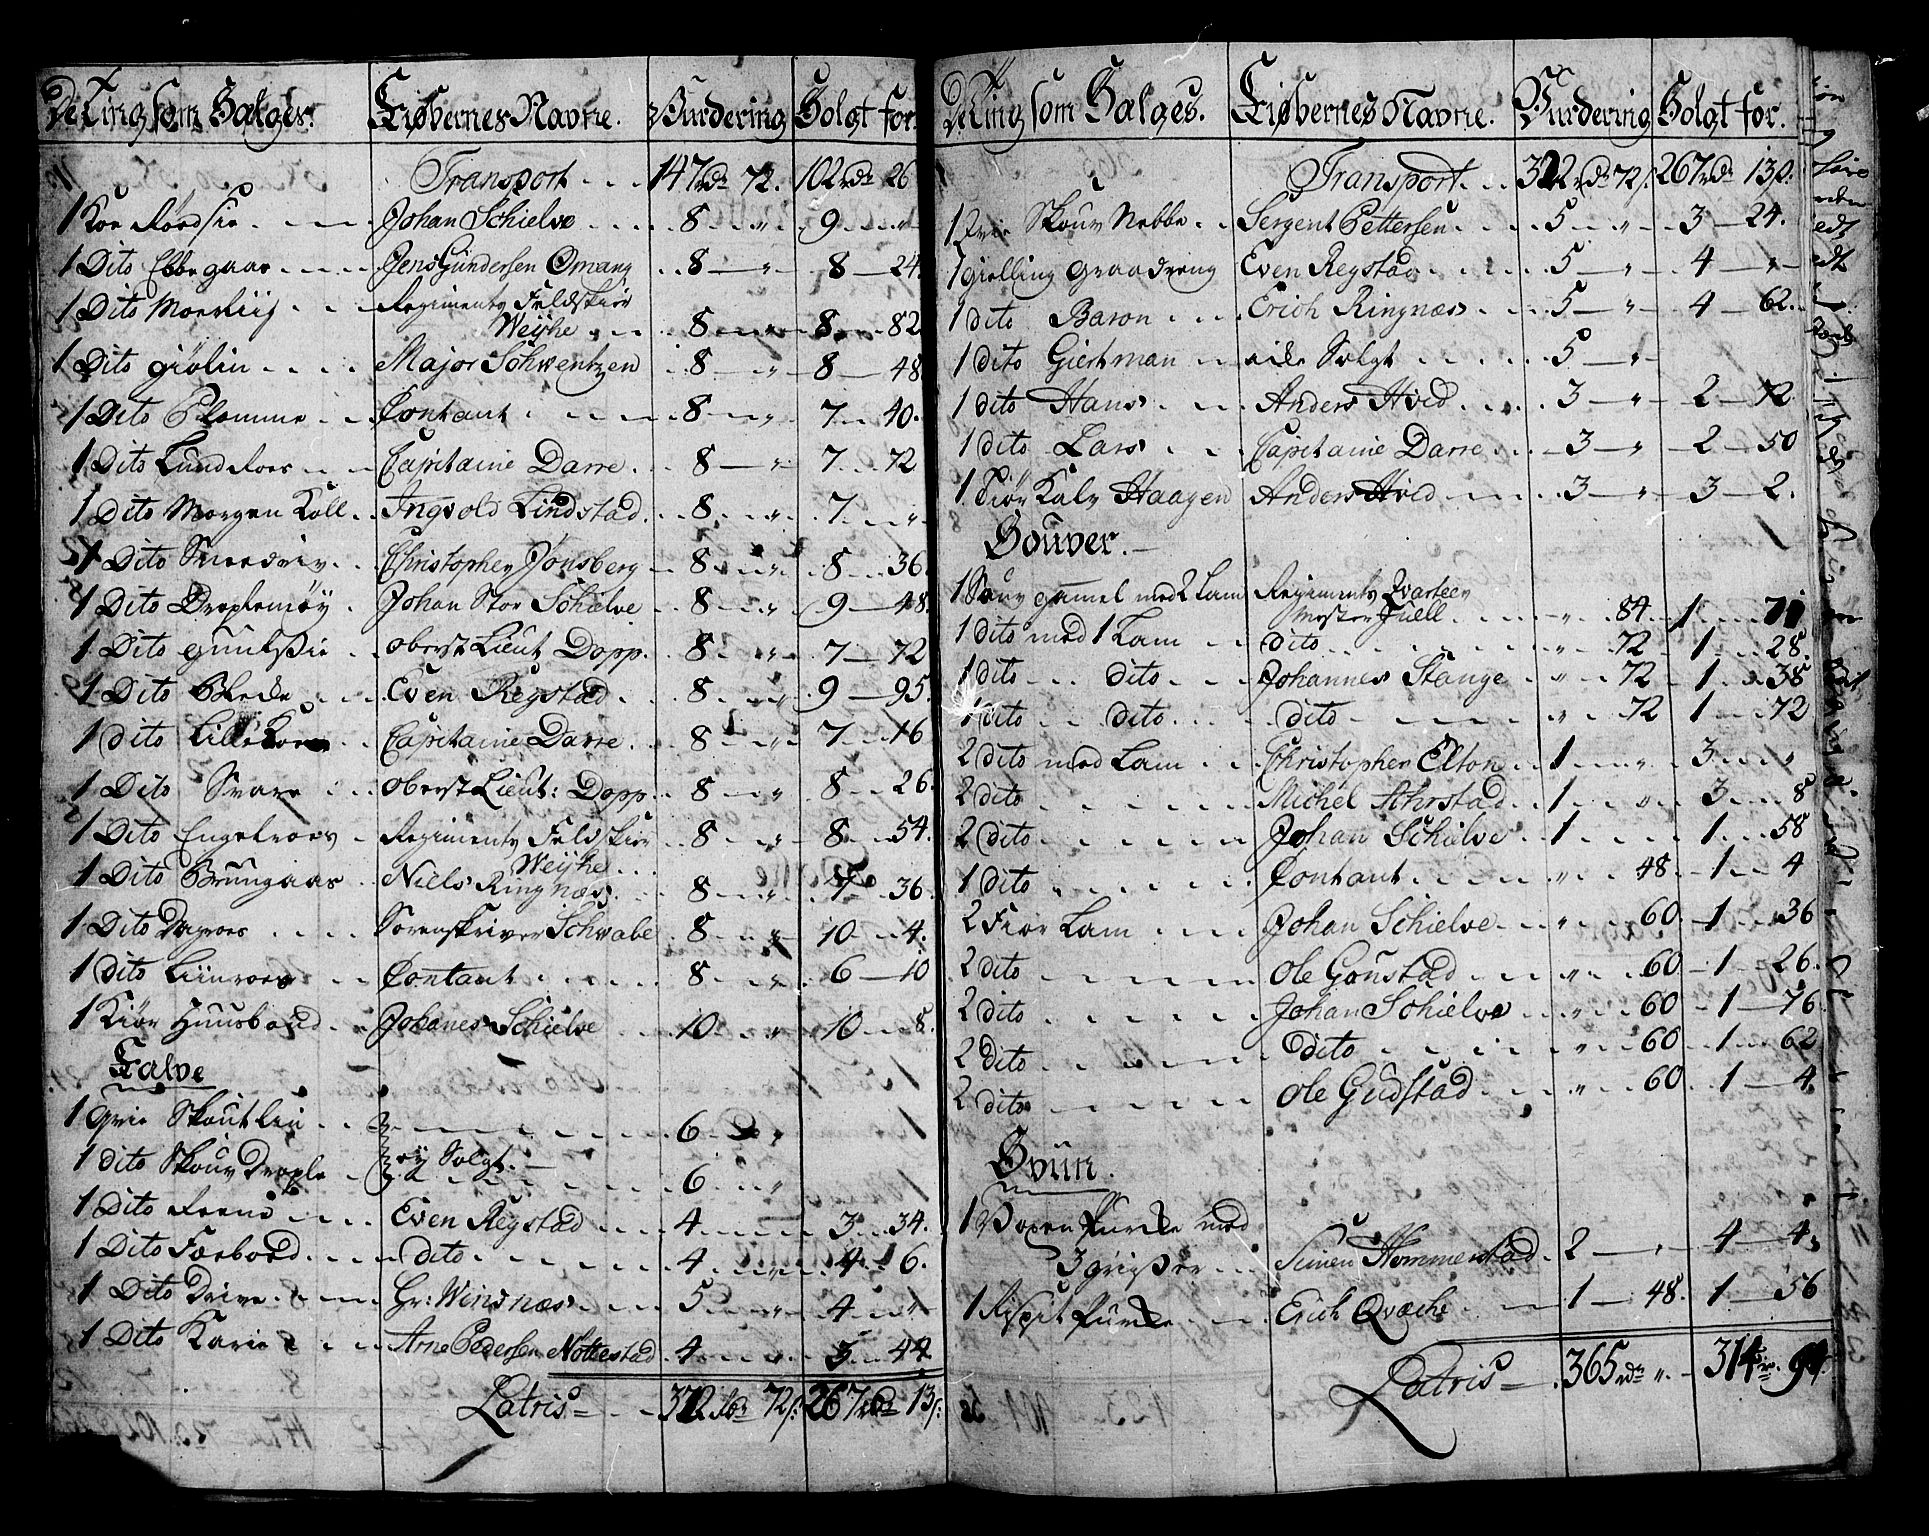 De Ting som Sælges. Kiøbernes Navne. Vurdering Solgt for.
Transport 147 rdr 72. 102 rdr 26
1 Koe Johan Schielve 8 " 9 "
1 Dito Ebbegaas Jens Gundersen Omang 8 " 8 24.
1 Dito Regiments Feldskiær
Weyhe 8 " 8 82
1 Dito giølin Major Schwentzen 8 " 8 48
1 Dito Blomme Contant 8 " 7 40.
1 Dito Lundroes Capitaine Darre 8 " 7 72
1 Dito Morgen Koll Ingvold Lindstad. 8 " 7 "
1 Dito Christopher Jonsberg 8 " 8 36.
1 Dito Droplemøy Johan Stor Schielve 8 " 9 48.
1 Dito oberst Lieut Dopp. 8 " 7 72
1 Dito Blede Even Regstad 8 " 9 95.
1 dito Lille Capitaine Darre 8 " 7 16
1 Dito Svare oberst Lieut: Dopp 8 " 8 26.
1 Dito Engelroes Regiments Feldskiær
Weyhe 8 " 8 54.
1 Dito Brungaas Niels Ringnæs 8 " 7 36.
1 Dito Dagroes Sorenskriver Schwabe 8 " 10 4.
1 dito Liinroes Contant 8 " 6 10
1 Kiør Huusboud Johanes Schielve 10 " 10 8.
Calve
1 Qvie Skoutlin 6 "
1 dito Skouv Drople ey Solgt. 6 "
1 Dito Even Regstad 4 3 34.
1 Dito Farboud dito 4 " 4 6.
1 Dito Drive Gr: Winsnæs 5 " 4 "
1 Dito Karie Arne Pedersen Nottestad 4 3 44
Latris 322 rdr 72 s: 267 rdr 13 s:
De Ting som Sælges. Kiøbernes Navne. Vurdering Solgt for.
Transport 322 rdr 72 s. 267 rdr 13 s.
1 Qvie Skouv Nebbe Sergent Pettersen 5 " 3 24.
1 gielling Graadreng Even Regstad 5 " 4 "
1 dito Baron Erich Ringnæs 5 " 4 62.
1 dito Giertman icke Solgt 5 "
1 dito Hans Anders Hvid 3 " 2 72
1 dito Lars Capitaine Darre 3 " 2 50
1 Kiør Kalv Haagen Anders Hvid 3 " 3 2.
Souver.
1 Souv gammel med 2 Lam Regiments Qvarteer
Mester Juell " 84. 1 71
1 dito med 1 Lam dito " 72 1 28.
1 dito dito Johannes Stange " 72 1 38
1 dito dito dito " 72 1 72
2 dito med Lam Christopher Elton 1 " 3 "
2 dito Michel 1 " 3 8
2 dito Johan Schielve 1 1 58
1 dito Contant " 48. 1 4
2 Fior Lam Johan Schielve " 60. 1 36
2 dito Ole Gønstad " 60 1 26.
2 dito Johan Schielve " 60 1 76
2 dito dito " 60 1 62
2 dito Ole Gudstad " 60 1 4.
Sviin.
1 Voxen Purke med
3 griser Simen Hommerstad 2 " 4 4
1 Purke Erich Qvæche 1 48. 1 56
Latris 365 rdr ". 314 rdr. 94.